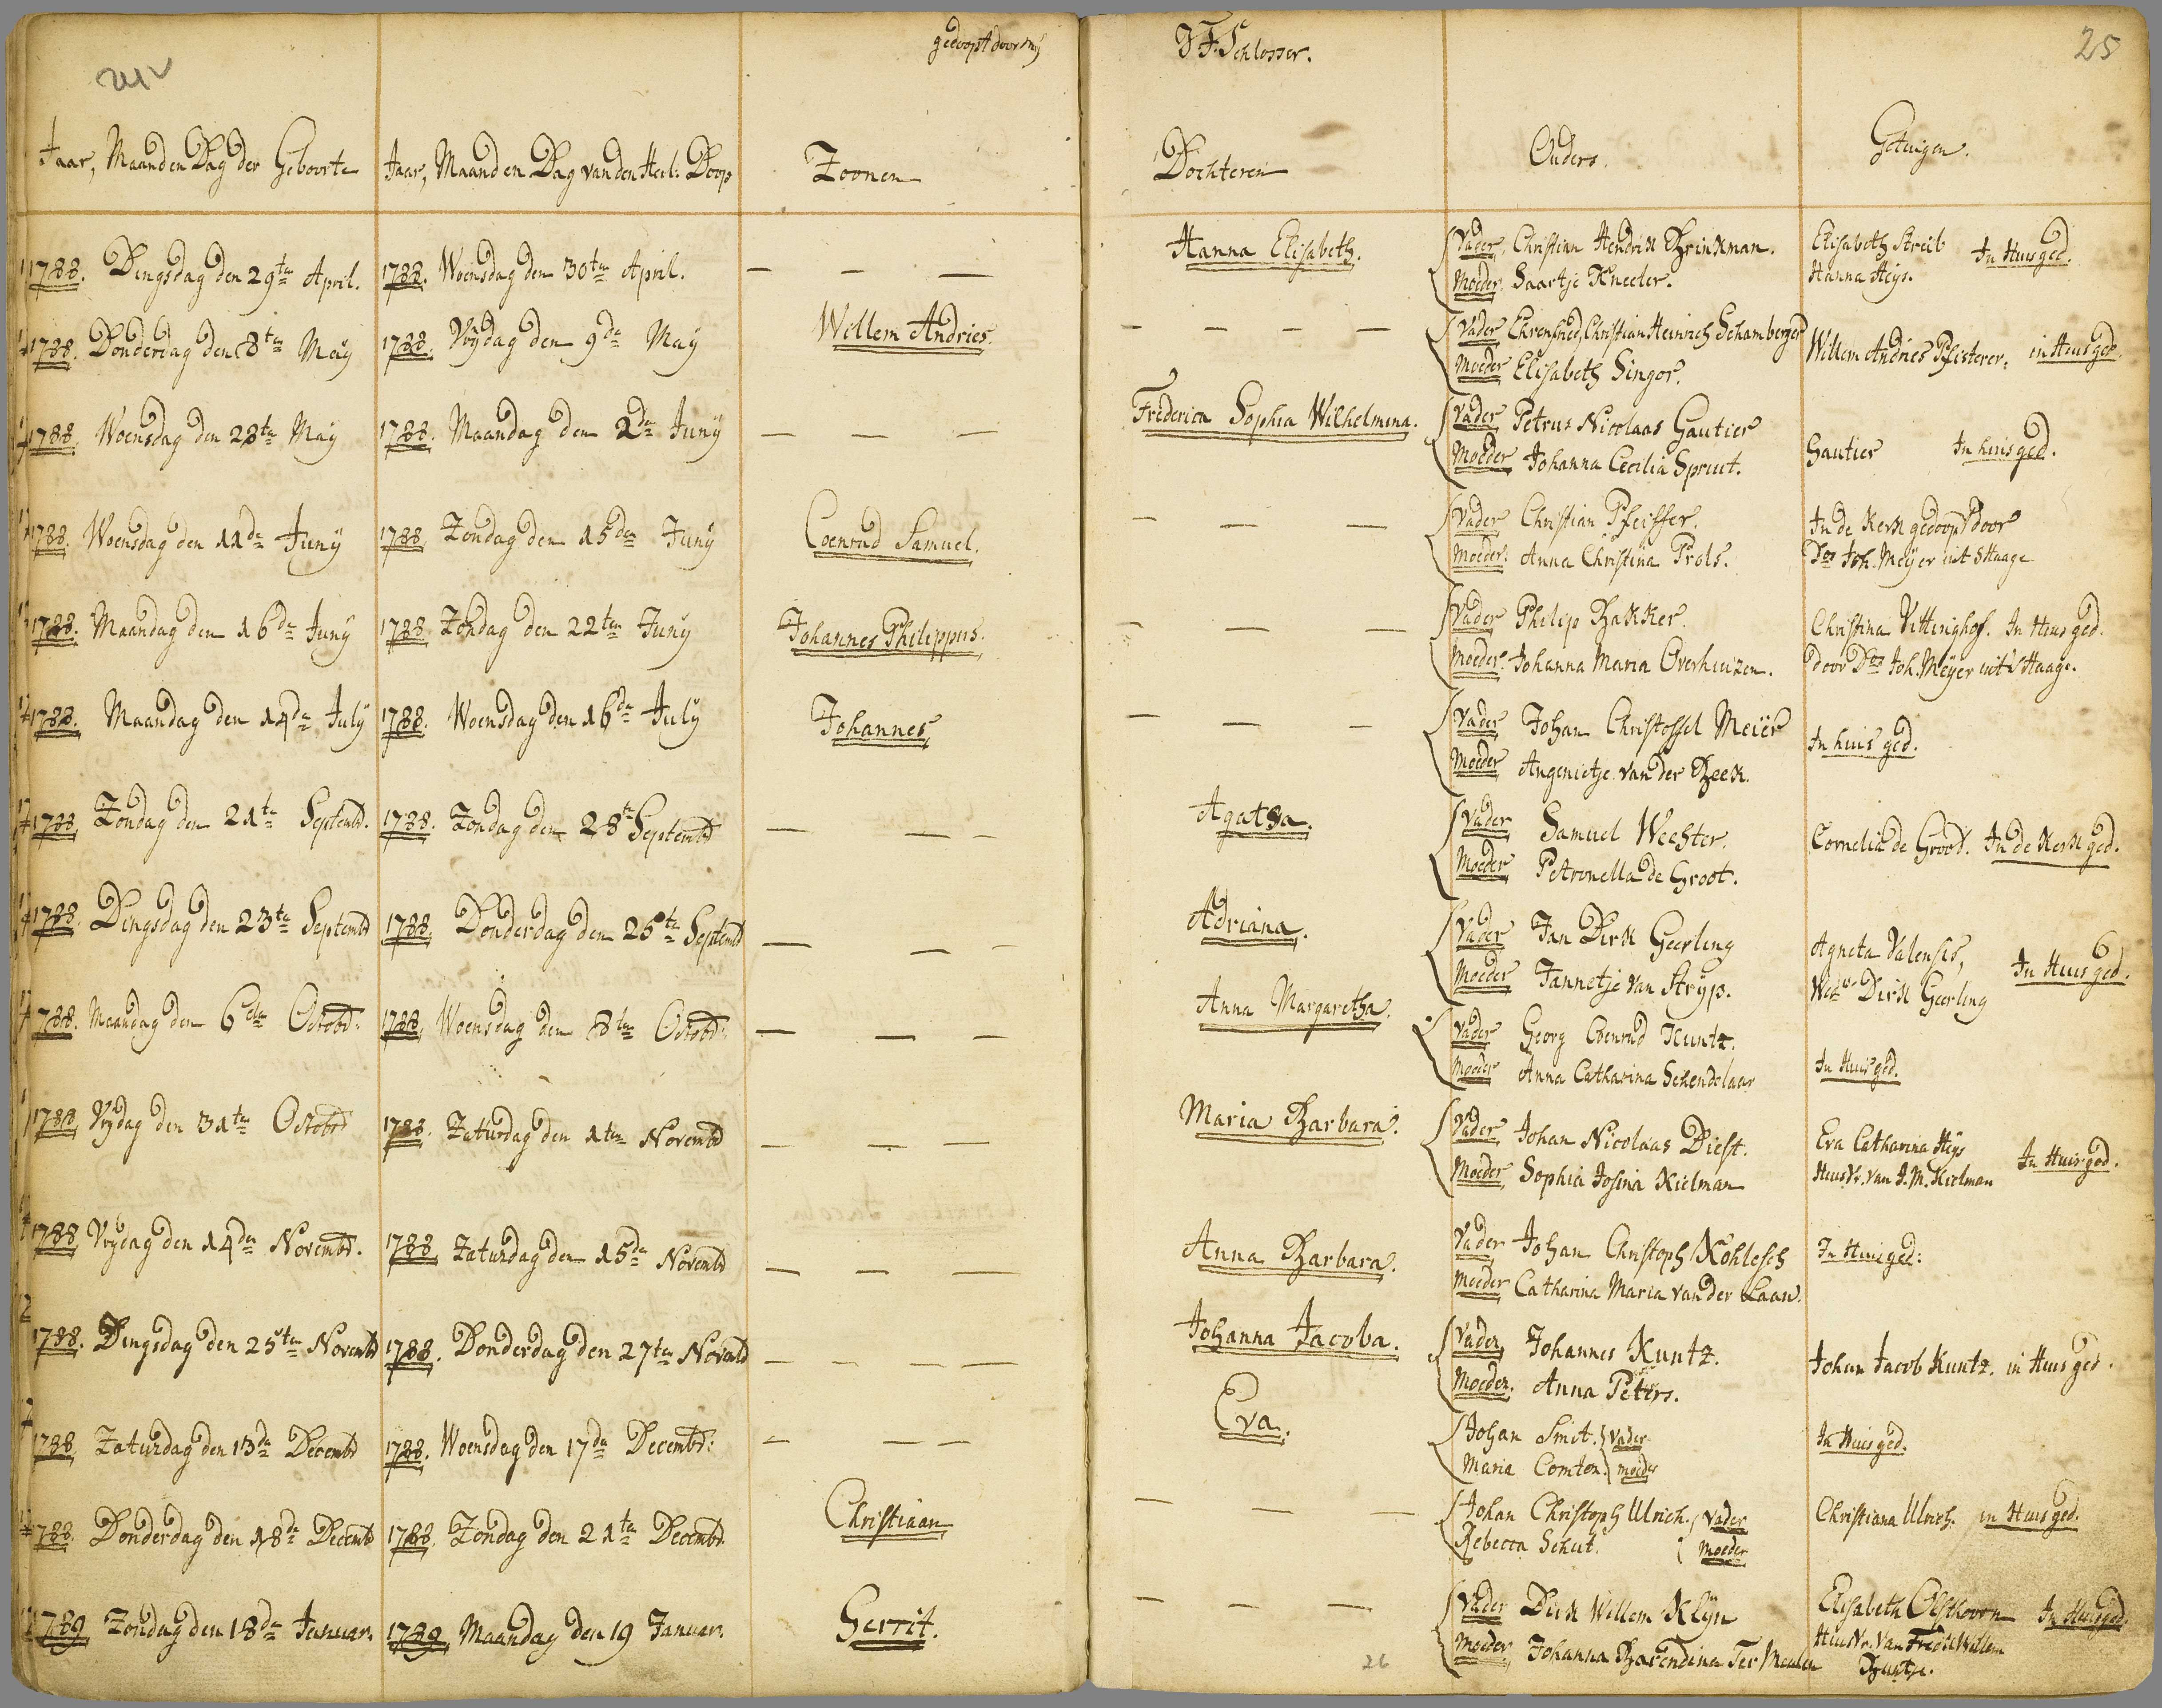 gedoopt door my J F. Schlosser.
25
Jaar, Maand en Dag der Geboorte Jaar, Maand en Dag van den Heil: Doop Zoonen Dochteren Ouders. Getuigen.
1788. Dingsdag den 29ten April. 1788. Woensdag den 30ten April. — — — Hanna Elisabeth. Vader, Christian Hendrik Brinkman. Elisabeth Streib In Huis ged.
Moeder. Saartje Kneeler. Hanna Heys.
1788. Donderdag den 8ten May 1788. Vrydag den 9de May Willem Andries. — — — — Vader Ehrenfried Christian Heinrich Schamberger Willem Andries Pfisterer. in Huis ged.
Moeder Elisabeth Singor.
1788. Woensdag den 28ten May 1788. Maandag den 2de Juny — — — Frederica Sophia Wilhelmina. Vader Petrus Nicolaas Gautier Gautier In huis ged.
Moeder Johanna Cecilia Spruit.
1788. Woensdag den 11de Juny 1788. Zondag den 15den Juny Coenrad Samuel. — — — Vader Christian Pfeiffer. In de Kerk gedoopt door
Moeder: Anna Christina Prols. Dos Joh. Meyer uit s'Haage
1788. Maandag den 16de Juny 1788. Zondag den 22ten Juny Johannes Philippus. — — — Vader Philip Bakker. Christina Vittinghof. In Huis ged.
Moeder. Johanna Maria Overhuizen. door Dos Joh. Meyer uit s'Haage.
1788. Maandag den 14de July 1788. Woensdag den 16de July Johannes — — — Vader Johan Christoffel Meier In huis ged.
Moeder Angenietje van der Beek.
1788. Zondag den 21te Septembr. 1788. Zondag den 28te Septembr — — — Agatha. Vader Samuel Wechter. Cornelia de Groot. In de Kerk ged.
Moeder Petronella de Groot.
1788. Dingsdag den 23te Septembr 1788. Donderdag den 25te Septembr — — — Adriana. Vader Jan Dirk Geerling Agneta Valensis, In Huis ged.
Moeder Jannetje van Stryp. Wede Dirk Geerling
1788. Maandag den 6de Octobr: 1788. Woensdag den 8ten Octobr: — — — Anna Margaretha. Vader Georg Coenrad Kuntz. In Huis ged.
Moeder Anna Catharina Schendelaar
1788. Vrydag den 31te Octobr 1788. Zaturdag den 1ten Novembr — — — Maria Barbara. Vader Johan Nicolaas Diest. Eva Catharina Heys In Huis ged.
Moeder Sophia Josina Kielman Huisvr. van J. M. Kielman
1788. Vrydag den 14de Novembr. 1788. Zaturdag den 15de Novembr — — — Anna Barbara. Vader Johan Christoph Kohlesch In Huis ged:
Moeder Catharina Maria van der Laan.
1788. Dingsdag den 25ten Novembr 1788. Donderdag den 27ten Novembr — — — — Johanna Jacoba. Vader Johannes Kuntz. Johan Jacob Kuntz. in Huis ged.
Moeder. Anna Peters.
1788. Zaturdag den 13de Decembr 1788. Woensdag den 17de Decembr: — — — Eva. Johan Smit. Vader In Huis ged.
Maria Comton. moeder
1788. Donderdag den 18de Decembr 1788. Zondag den 21te Decembr. Christiaan — — — Johan Christoph Ulrich. Vader Christiana Ulrich. in Huis ged.
Rebecca Schut. Moeder
1789 Zondag den 18de Januar. 1789. Maandag den 19 Januar. Gerrit. — — — Vader Dirk Willem Klyn Elisabeth Olsthoorn In Huis ged.
Moeder. Johanna Barendina Ter Meulen Huisvr. van Fredk Willem
26 Buntje.